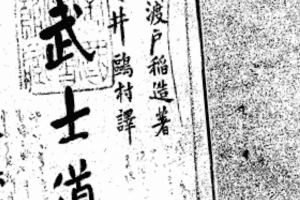 渡戸稻造著
井鷗村譯
武士道